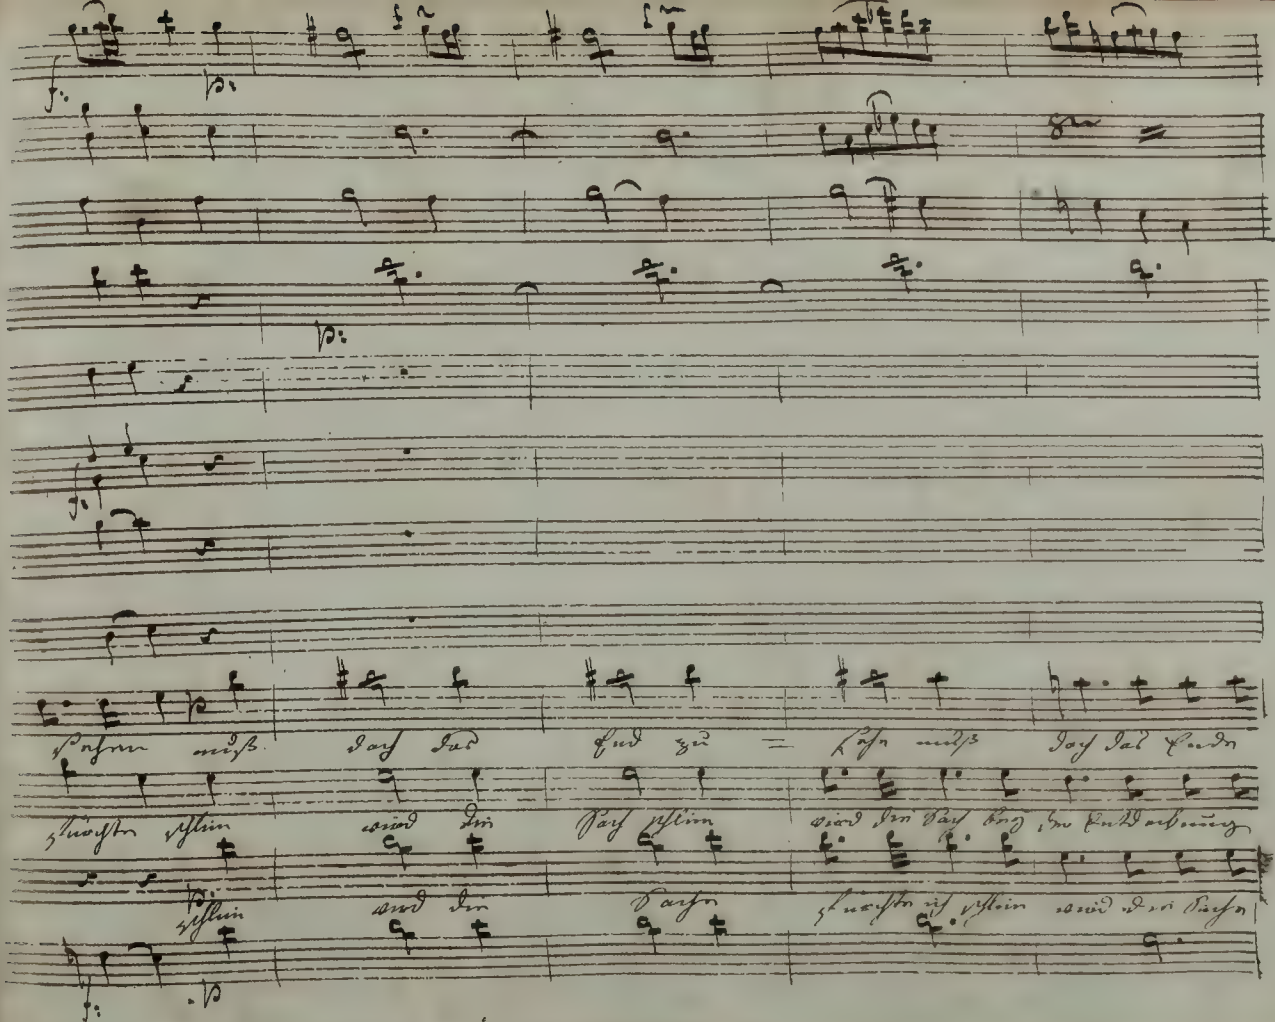 f: p:
p:
f:
p
sehen muß doch das End zu = sehn muß doch das Ende
fürchte schlim wird die Sach schlim wird die Sach bey der Entdeckung
p:
schlim wird die Sache fürchte ich schlim wird die Sache
f: p